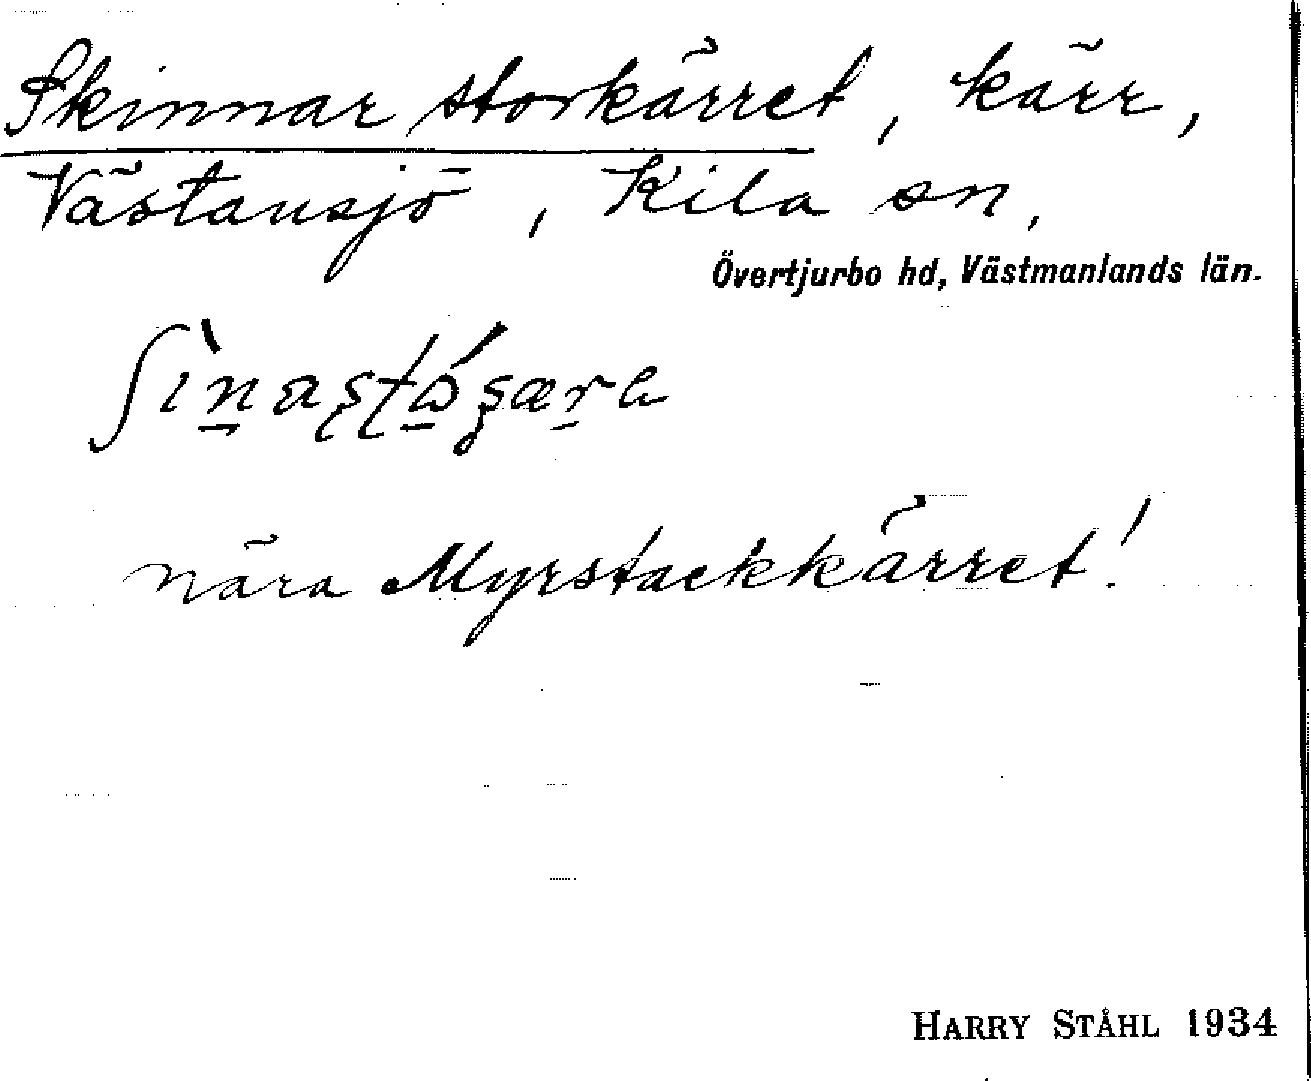 Skinnar storkärret, kärr,
Västansjö, Kila sn,
Övertjurbo hd, Västmanlands län.
nära Myrstackkärret!
HARRY STÅHL 1934